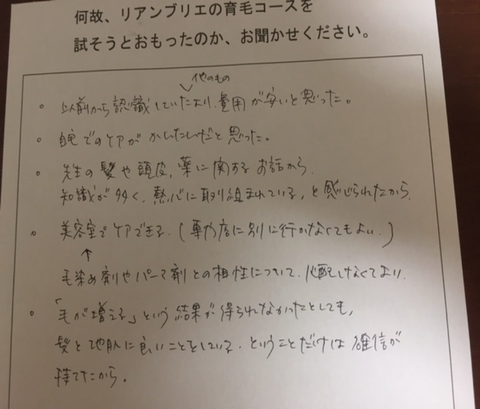 何故、リアンブリエの育毛コースを
試そうとおもったのか、お聞かせください。
他のもの
。以前から認識していたより、費用が安いと思った。
。自宅でのケアがかんたんだと思った。
。先生の髪や頭皮、薬に関するお話から
知識が多く、熱心に取り組まれている、と感じられたから
。美容室でケアできる。(薬局に別に行かなくてもよい。)
↑
毛染め剤やパーマ剤との相性について、心配しなくてよい。
。「毛が増える」という結果が得られなかったとしても、
髪と地肌に良いことをしている。ということだけは確信が
持てたから。